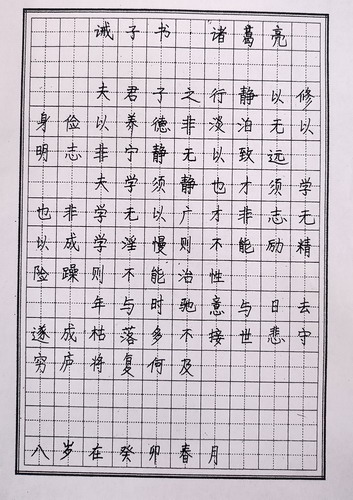 诫子书 诸葛亮
夫君子之行静以修
身俭以养德非淡泊无以
明志非宁静无以致远
夫学须静也才须学
也非学无以广才非志无
以成学淫慢则不能励精
险躁则不能治性
年与时驰意与日去
遂成枯落多不接世悲守
穷庐将复何及
八岁在癸卯春月